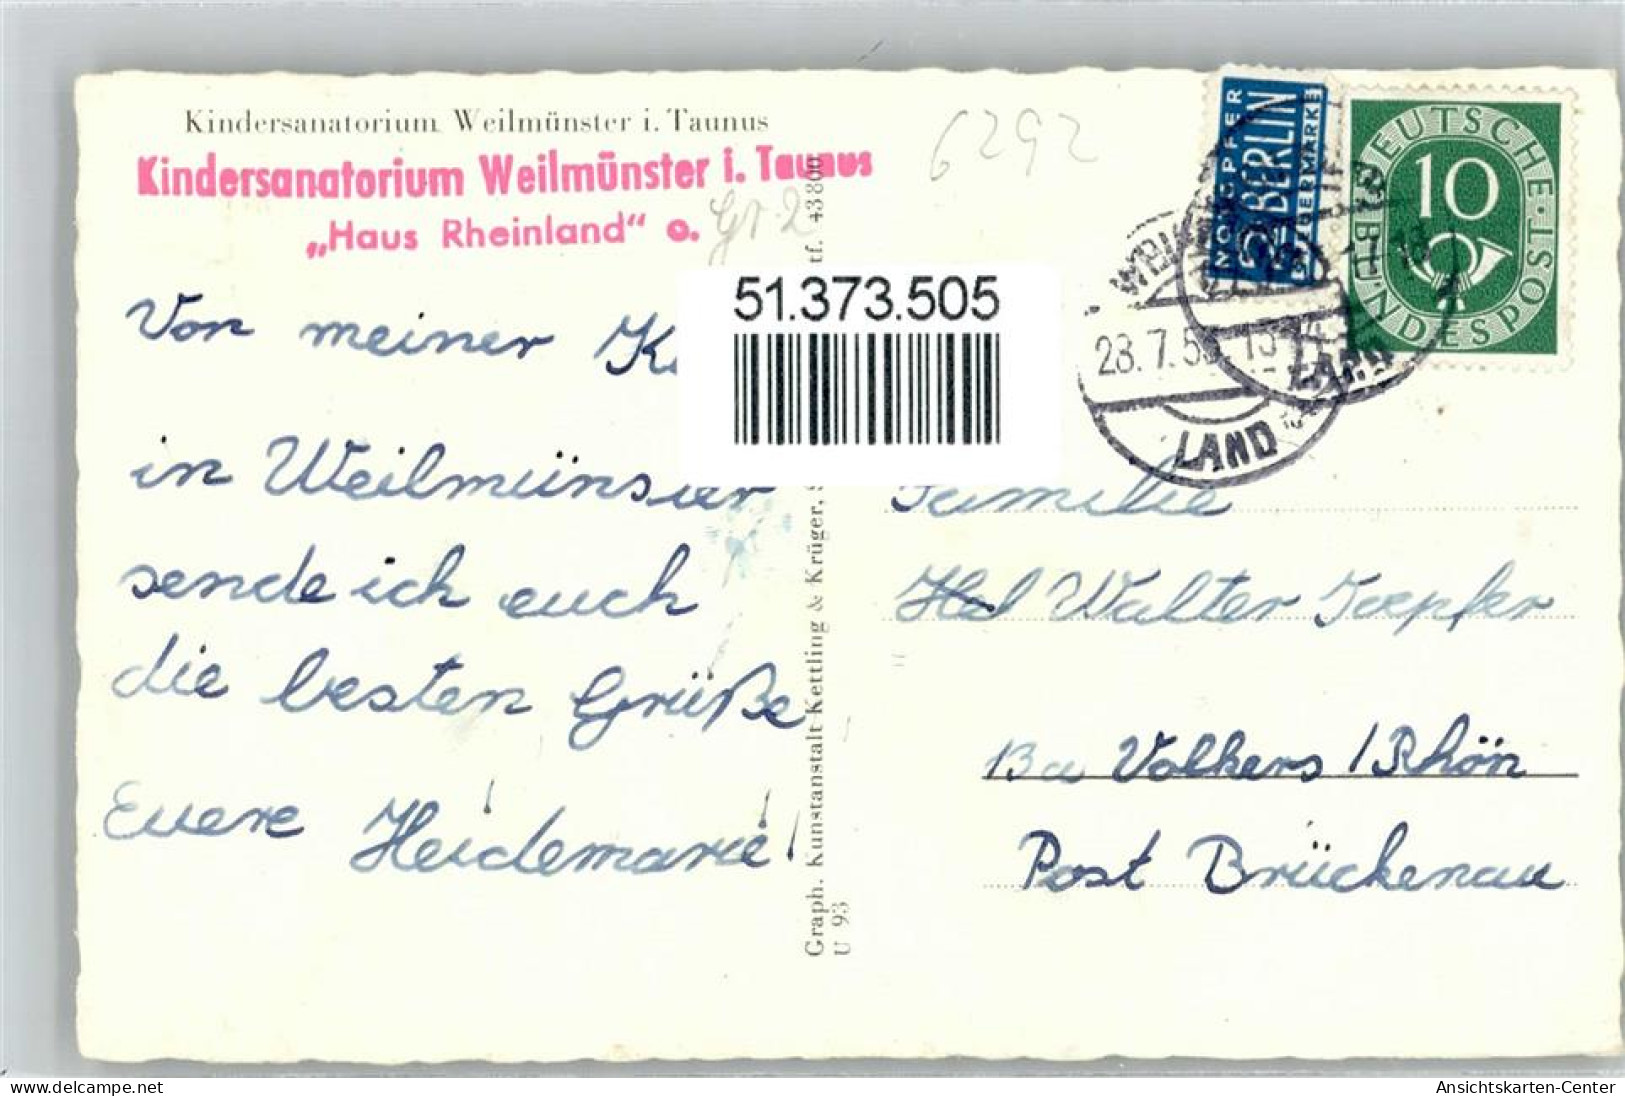 Kindersanatorium Weilmünster i. Taunus
Kindersanatorium Weilmünster i. Taunus
„Haus Rheinland“ o.
gr 2
6292
Von meiner K
in Weilmünster
sende ich euch
die besten Grüße
Euere Heidemarie!
51.373.505
Graph. Kunstanstalt Kettling & Krüger, S tf. 43800
U 93
NOTOPFER
2 BERLIN
STEUERMARKE
DEUTSCHE BUNDESPOST
10
28.7.5
LAND
Familie
Walter Toepfer
Volkers / Rhön
Post Brückenau
oldthing.de
Ansichtskarten-Center